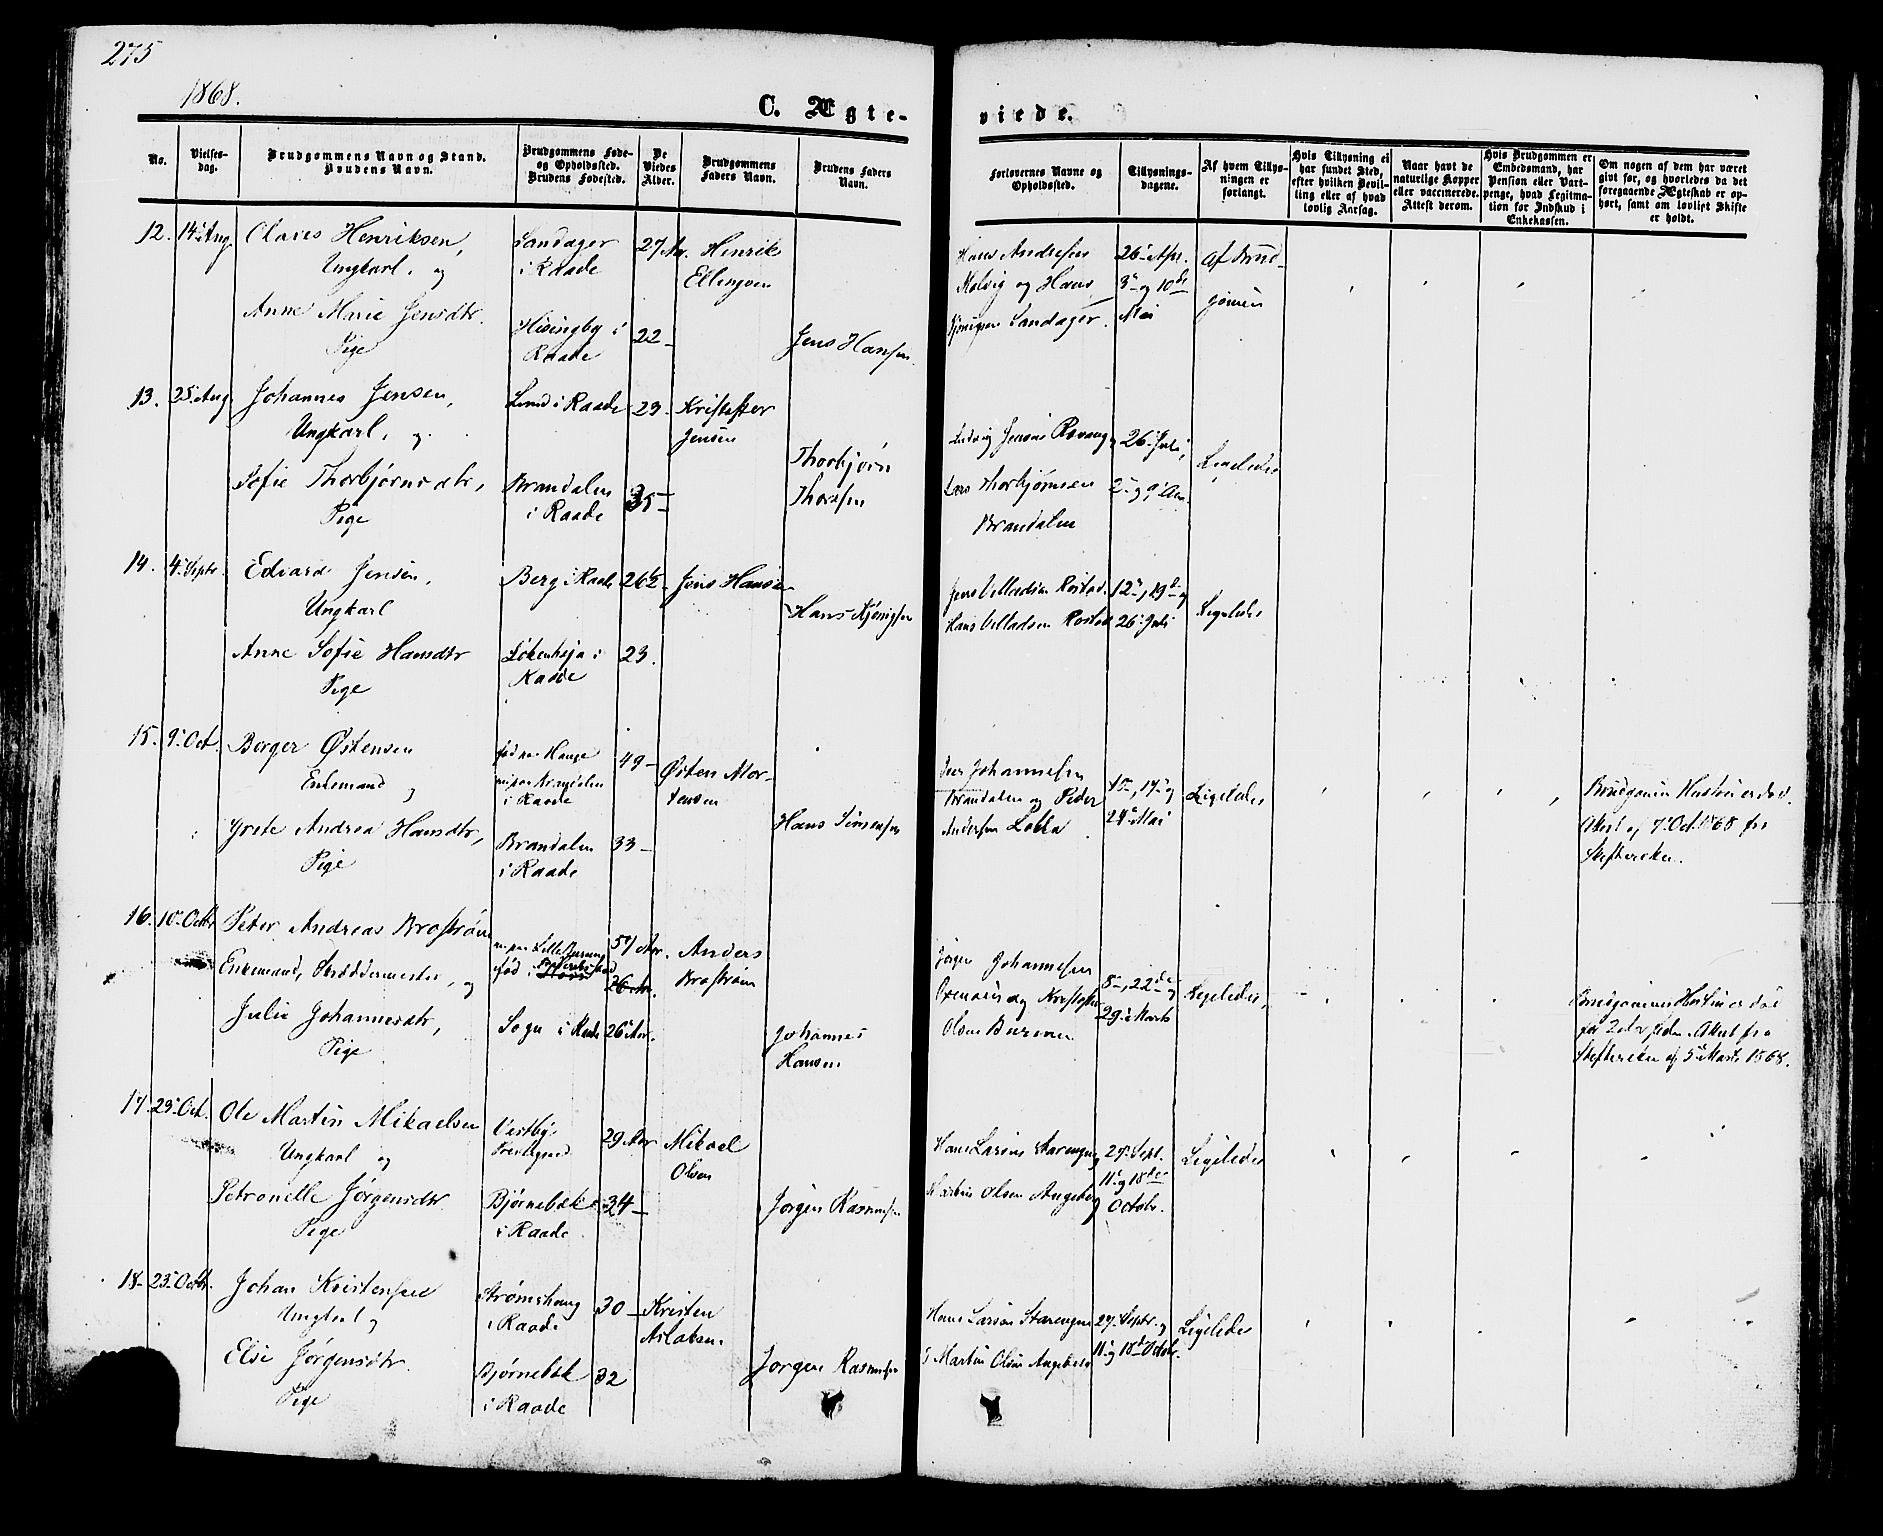 275
1868.
C. Ægte-
viede.
No.
Vielses-
dag.
Brudgommens Navn og Stand.
Brudens Navn.
Brudgommens Føde-
og Opholdssted.
Brudens Fødested.
De
Viedes
Alder.
Brudgommens
Faders Navn.
Brudens Faders
Navn.
Forlovernes Navne og
Opholdssted.
Tillysnings-
dagene.
Af hvem Tillys-
ningen er
forlangt.
Hvis Tillysning ei
har fundet Sted,
efter hvilken Bevil-
ling eller af hvad
lovlig Aarsag.
Naar havt de
naturlige Kopper
eller vaccinerede.
Attest derom.
Hvis Brudgommen er
Embedsmand, har
Pension eller Vart-
penge, hvad Legitima-
tion for Indskud i
Enkekassen.
Om nogen af dem har været
givt før, og hvorledes da det
foregaaende Ægteskab er op-
hørt, samt om lovligt Skifte
er holdt.
12. 14 Aug. Olaves Henriksen,
Ungkarl, og
Anne Marie Jensdtr.
Pige
Sandager
i Raade
Hisingby i
Raade
27 Ar.
22 –
Henrik
Ellingsen
Jens Hansen.
Hans Andresen
Kolvig og Hans
Sandager.
26 Apr.
3 og 10de
Mai
Af Brud-
gomen
13. 25 Aug Johannes Jensen,
Ungkarl, og
Sofie Thorbjørnsdtr,
Pige
Lund i Raade
Brandalen
i Raade
23
35 –
Kristoffer
Jensen
Thorbjørn
Thorsen
Ludvig Jensen
Lars Thorbjørnsen
Brandalen
26 Juli,
2 og 9 Au.
Ligeledes
14. 4 Septr. Edvard Jensen,
Ungkarl
Anne Sofie Hansdtr
Pige
Berg i Raade
i
Raade
26½ –
23.
Jens Hansen
Hans
Jens Willadsen Rostad
Hans Willadsen Rostad
12, 19de og
26 Juli
Ligeledes
15. 9 Oct. Berger Østensen
Enkemand og
Grete Andrea Hansdtr,
Pige
fød paa Hauge
i Raade
Brandalen
i Raade
49 –
33 –
Østen Mor-
tensen
Hans Simensen
Johannesen
Brandalen og Peder
Andersen Lobba
10, 17 og
24 Mai
Ligeledes
Brudgomen Hustru er død.
Attest af 7 Oct. 1868 fra
Skifteretten.
16. 10 Octbr Peter Andreas Brostrøm
Enkemand, Skræddermester, og
Julie Johannesdtr,
Pige
fød i Frederiksstad
Sogn i Raade
57 Aar.
26 Aar.
26 Aar.
Anders
Brostrøm
Johannes
Hansen
Jørgen Johannesen
og Kristoffer
Olsen
8, 22de og
29 Marts
Ligeledes,
Brudgommens Hustru er død
for 2 Aar siden. Attest fra
Skifteretten af 5 Marts 1868.
17. 23 Oct. Ole Martin Mikaelsen
Ungkarl og
Petronelle Jørgensdtr
Pige
Vestby
Prestegjeld
Bjørnebæk
i Raade
29 Aar
34 –
Mikael
Olsen
Jørgen Rasmussen
Hans Larsen Starengen
Martin Olsen Augeberg
27 Sept.
11 og 18de
Octobr.
Ligeledes
18 – 23 Octbr. Johan Kristensen
Ungkarl og
Else Jørgensdtr.
Pige
Strømshaug
i Raade
Bjørnebæk
i Raade
30 –
32
Kristen
Aslaksen
Jørgen Rasmussen
Hans Larsen Starengen
Martin Olsen Augeberg
27 Septr. og
11 og 18de Octobr.
Ligeledes